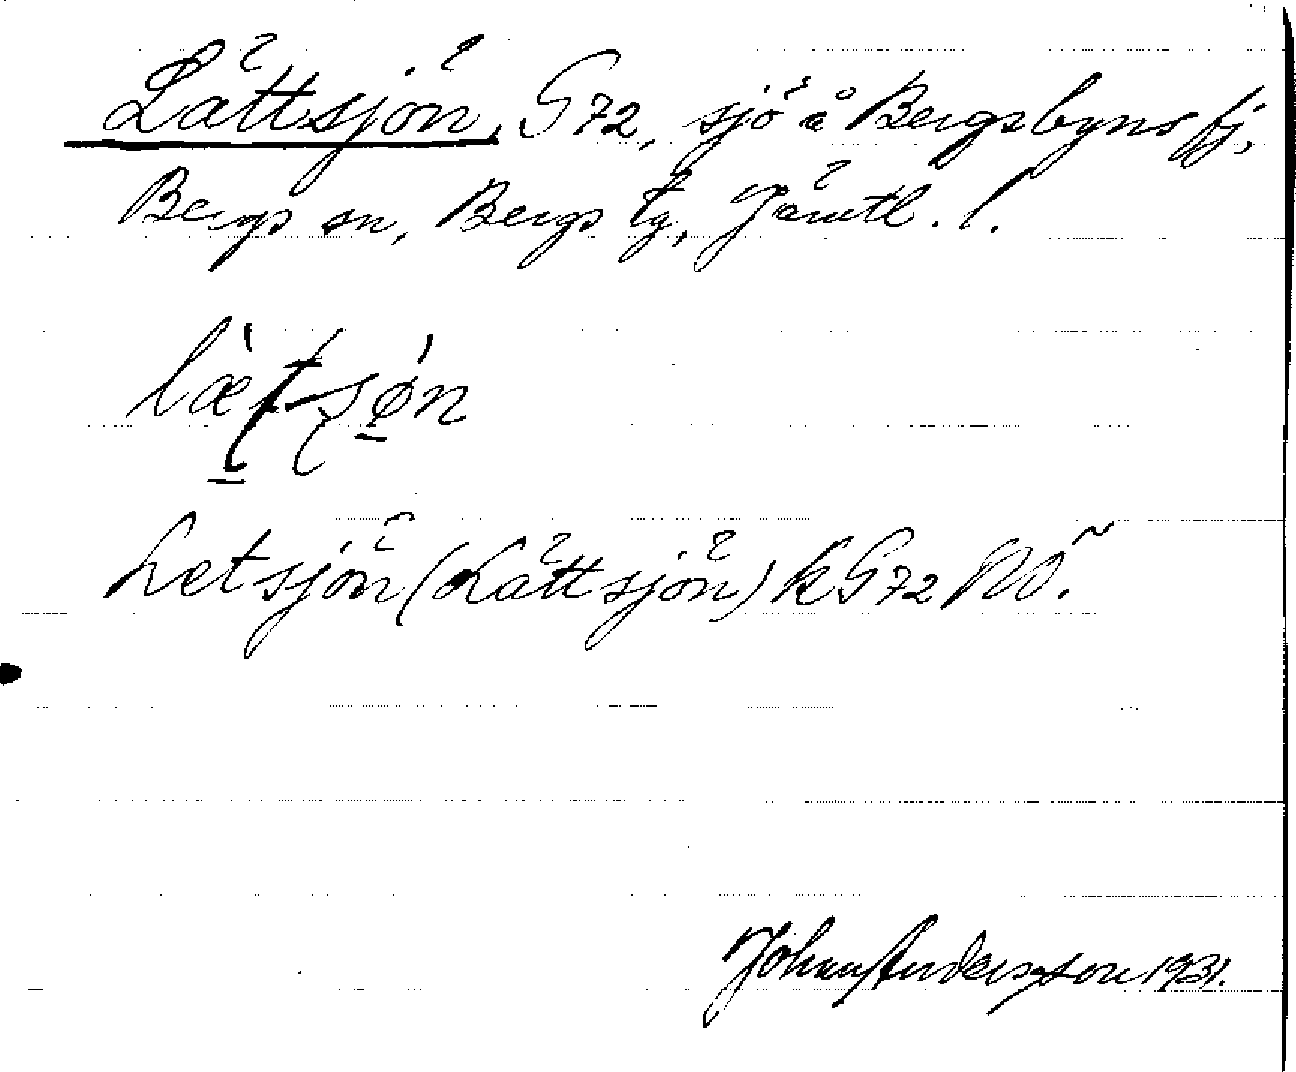 Lättsjön, G72, sjö å Bergsbyns fj,
Bergs sn, Bergs tg, Jämtl. l.
Letsjön (Lättsjön) k G72 NV.
Johan Andersson 1931.